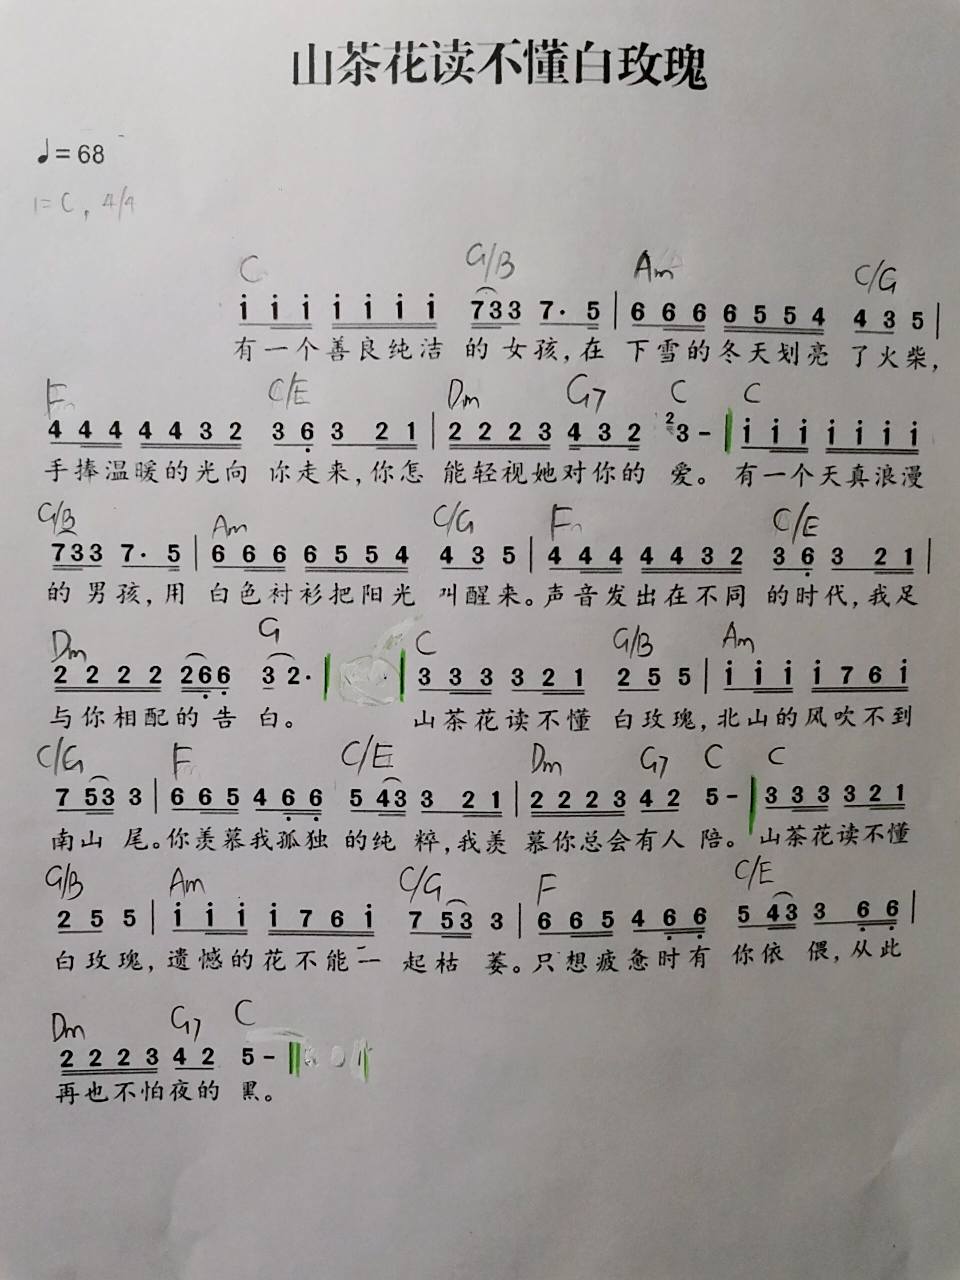 山茶花读不懂白玫瑰
♩=68
1=C, 4/4
C G/B Am C/G
i i i i i i i 733 7· 5 | 6 6 6 6 5 5 4 4 3 5 |
有一个善良纯洁 的女孩,在 下雪的冬天划亮 了火柴,
F C/E Dm G7 C C
4 4 4 4 4 3 2 3 6 3 2 1 | 2 2 2 3 4 3 2 2 3 - | i i i i i i i
手捧温暖的光向 你走来,你怎 能轻视她对你的 爱。 有一个天真浪漫
G/B Am C/G F C/E
733 7· 5 | 6 6 6 6 5 5 4 4 3 5 | 4 4 4 4 4 3 2 3 6 3 2 1 |
的男孩,用 白色衬衫把阳光 叫醒来。声音发出在不同 的时代,我足
Dm G C G/B Am
2 2 2 2 266 3 2· | | 3 3 3 3 2 1 2 5 5 | i i i i 7 6 i
与你相配的告 白。 山茶花读不懂 白玫瑰,北山的风吹不到
C/G F C/E Dm G7 C C
7 53 3 | 6 6 5 4 6 6 5 43 3 2 1 | 2 2 2 3 4 2 5 - | 3 3 3 3 2 1
南山 尾。你羡慕我孤独 的纯 粹,我羡 慕你总会有人 陪。 山茶花读不懂
G/B Am C/G F C/E
2 5 5 | i i i i 7 6 i 7 53 3 | 6 6 5 4 6 6 5 43 3 6 6 |
白玫瑰,遗憾的花不能一 起枯 萎。只想疲惫时有 你依 偎,从此
Dm G7 C
2 2 2 3 4 2 5 - ‖
再也不怕夜的 黑。